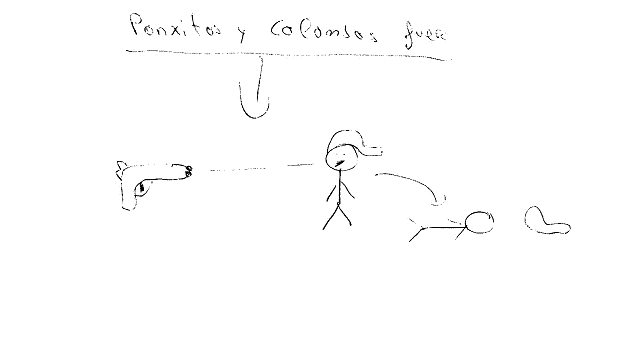 Panxitos y Colombos fuera